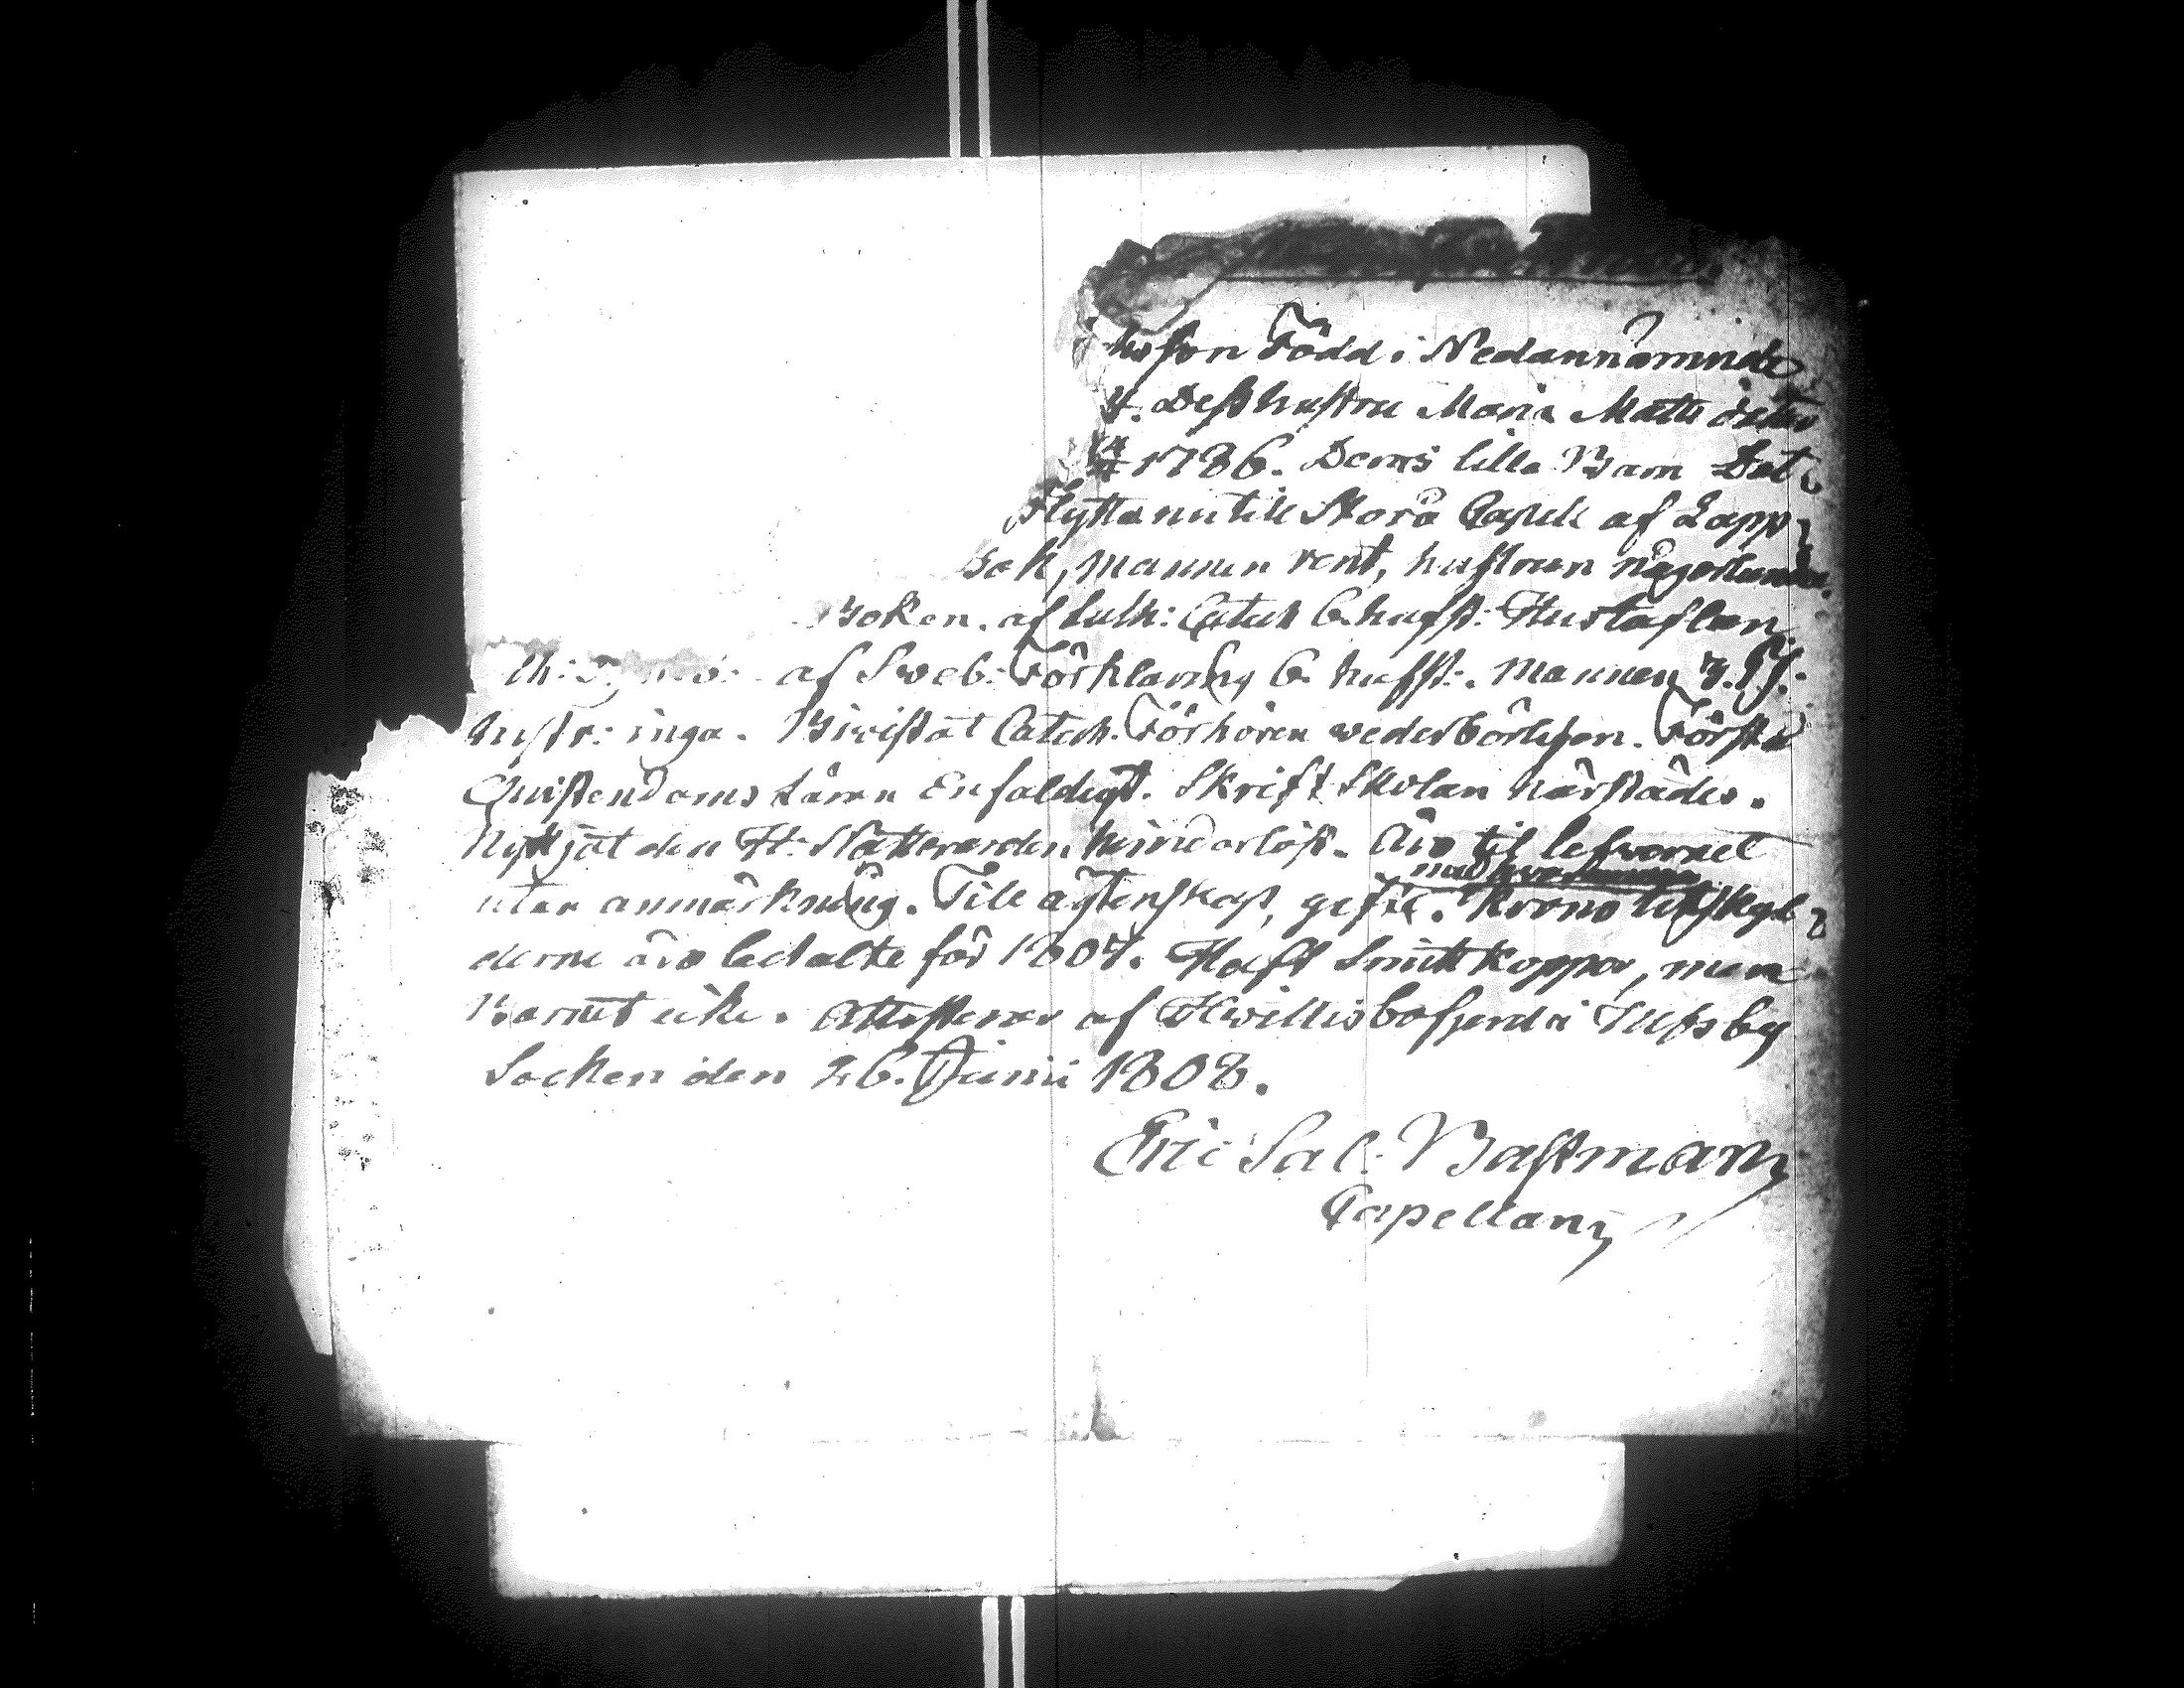 son Född i Nedannämnde
4. Dess hustru Maria Mats dotter
1786. Deras lilla Barn
Flytta nu till Storå Capell af Lappo
Bok, mannen rent, hustrun någorlunda
Boken. af Luth: Catech 6. hufst: Hustaflan
af Sweb: Förklaring 6. hufst:. mannen 7. Ps:
hustr: inga. Biwistat Catech. Förhören wederbörligen. Förstå
Christendoms Läran Enfaldigt. Skrift Skolan härstädes.
Nyttjat den H: Nattwarden hinderlöst. Äro til lefwernet
utan anmärkning. Till ägtenskap, gifte. Krono utskyl
med hwarannan
derne äro betalte för 1807. Haft Smittkoppor, men
Barnet icke. Attesterar af Qwillis bofjerd i Illfsby
Socken den 26. Junii 1808.
Eric Sal: Bastman
Capellan